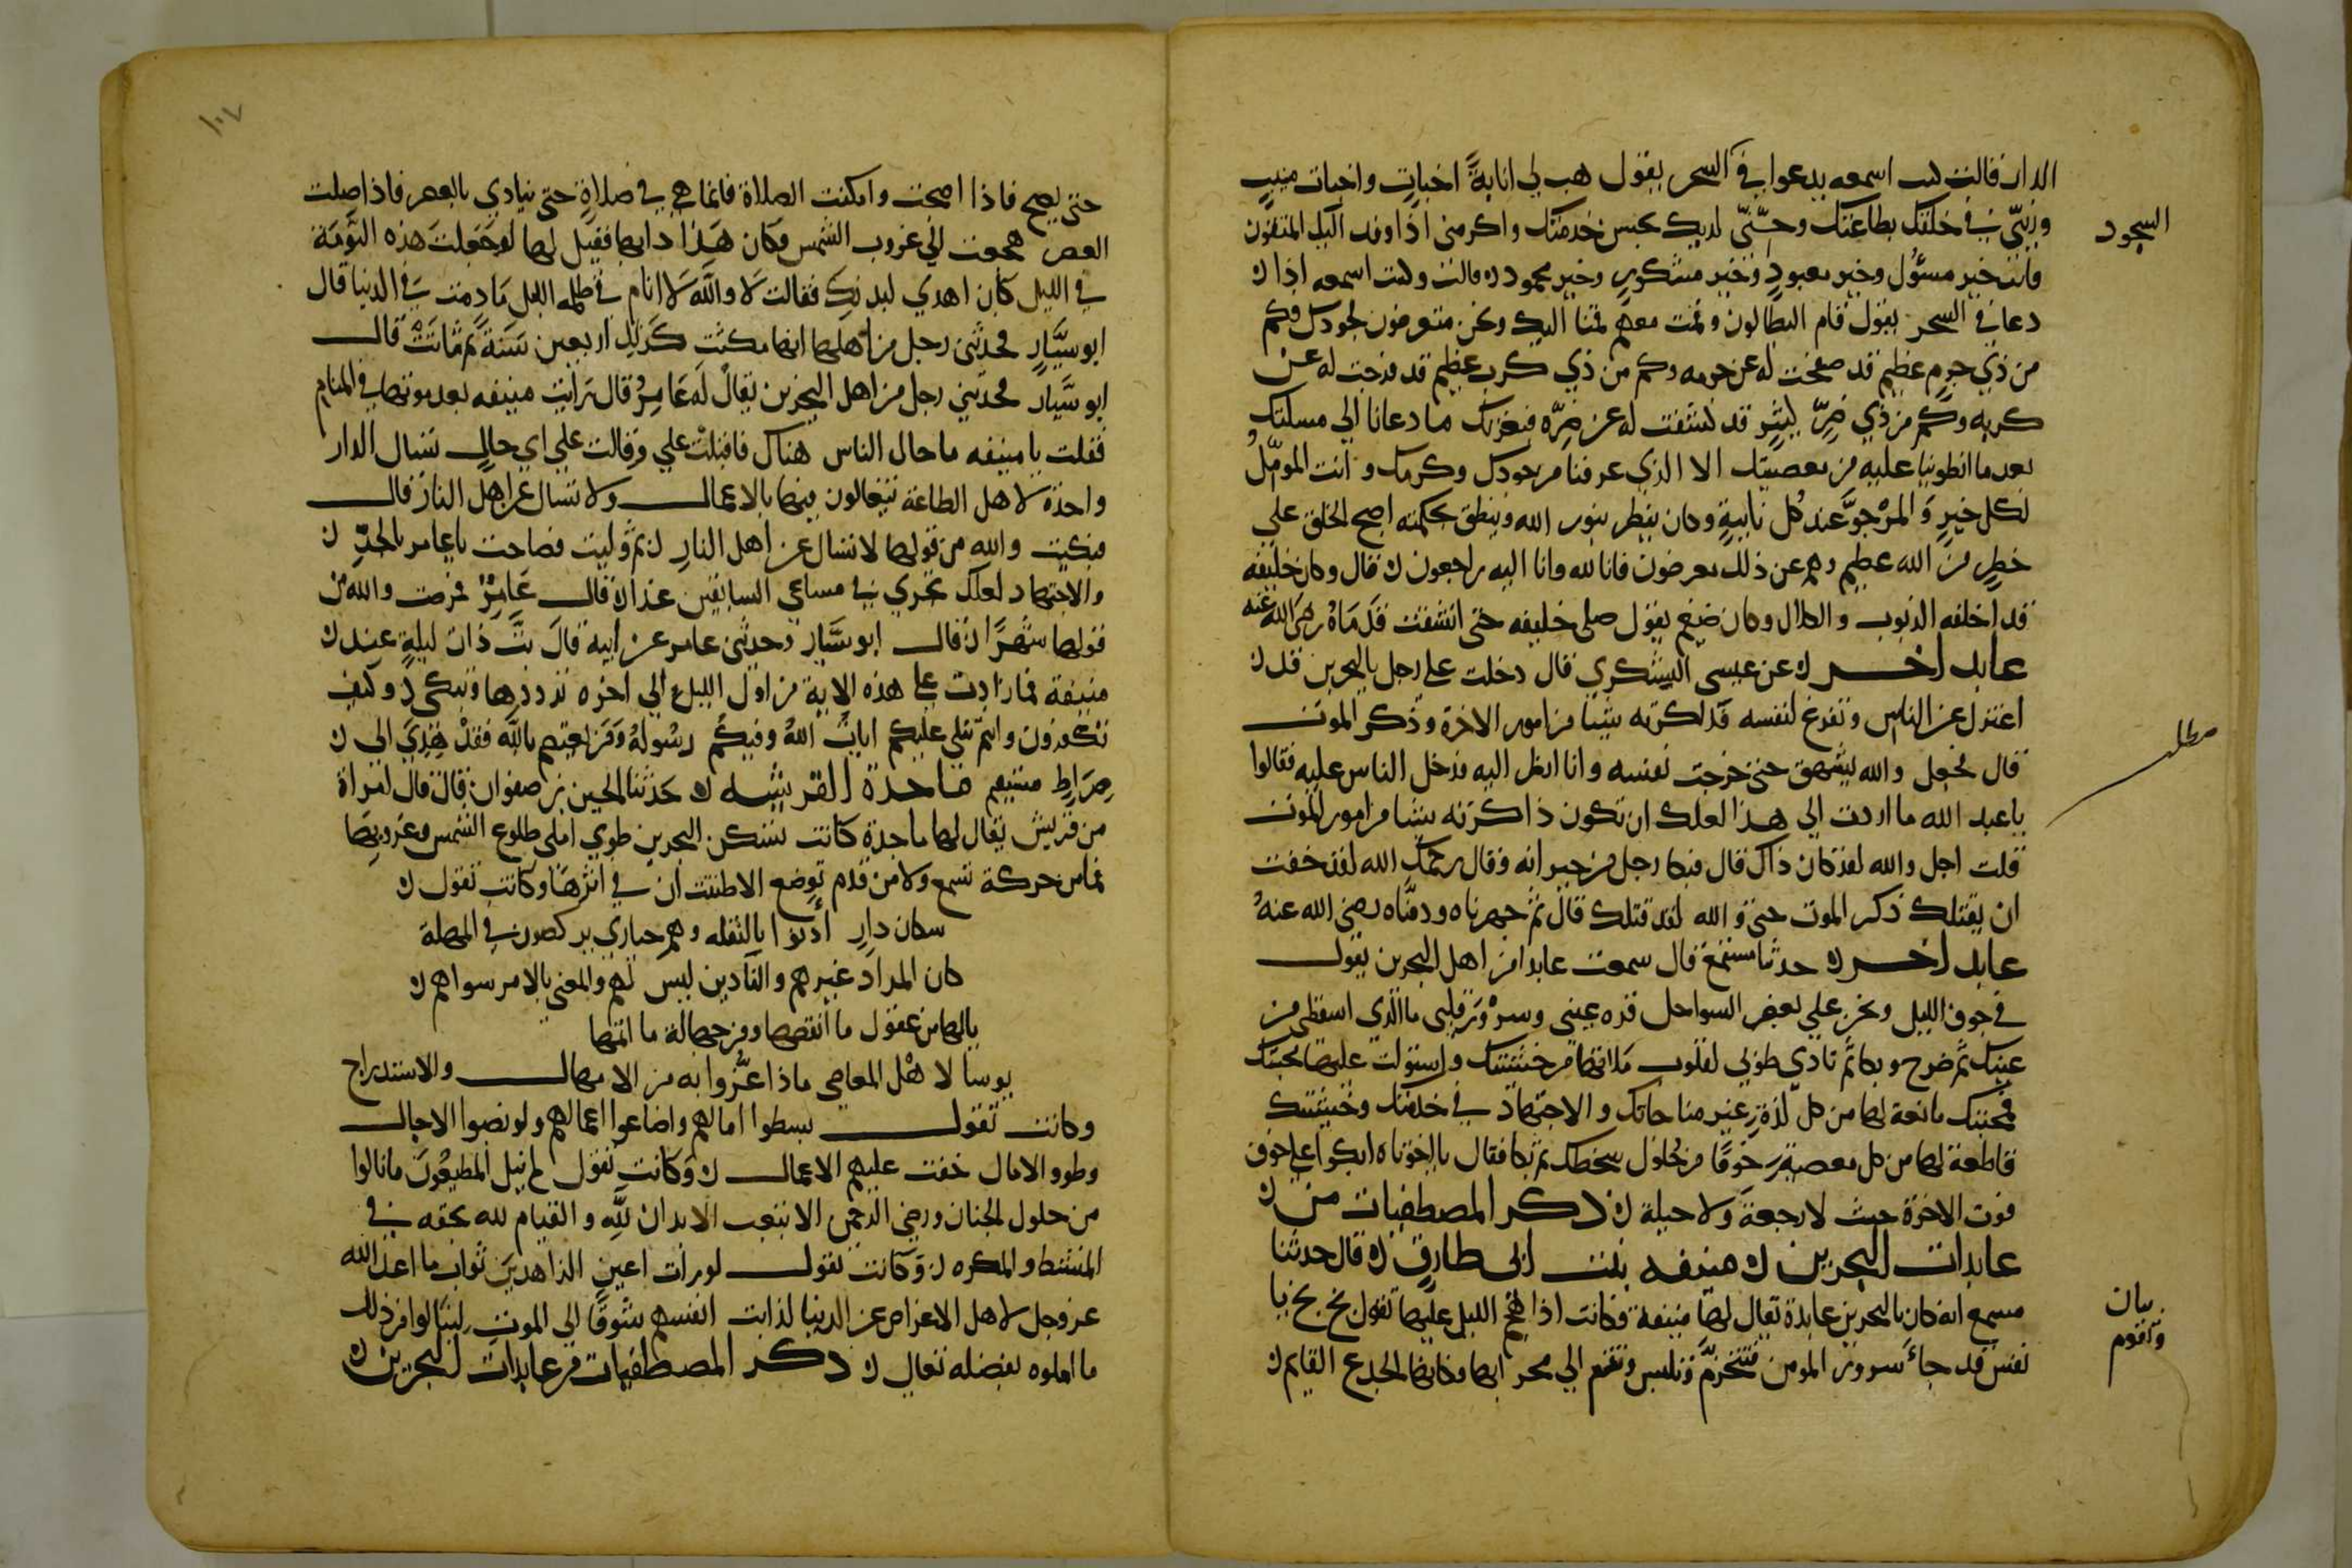 الدار قالت كنت اسمعه يدعوا في السحر يقول هب لي انابةً اخباتٍ واخبات منيبٍ
وزيّنّي في خلقك بطاعتك وحسّنّي لديك بحسن خدمتك واكرمني اذا وفد اليك المتقون
فانت خير مسئول وخير معبودٍ وخير مشكورٍ وخير محمود قالت وكنت اسمعه اذا
السجود
دعا في السحر يقول قام البطالون وقمت معهم قمنا اليك ونحن متعرضون لجودك فكم
من ذي جرمٍ عظيم قد صفحت له عن جرمه وكم من ذي كرب عظيم قد فرجت له عن
كربه وكم من ذي ضرّ كثيرٍ قد كشفت له عن ضرّه فبعزتك ما دعانا الى مسلتك
بعد ما انطوينا عليه من معصيتك الا الذي عرفنا من جودك وكرمك وانت الموملّ
لكل خيرٍ والمرجوّ عند كل نايبةٍ وكان ينظر بنور الله وينطق بحكمته اصبح الخلق على
خطرٍ من الله عظيم وهم عن ذلك معرضون فانا لله وانا اليه راجعون قال وكان خليفه
قد اخلفه الذنوب والكلال وكان ضيغم يقول صلى خليفه حتى انشقت قدماه رضي الله عنه
عابد اخر عن عيسى اليشكري قال دخلت على رجل بالبحرين قد
اعتزل عن الناس وتفرغ لنفسه فذاكرته شيئا من امور الاخرة وذكر الموت
مطلب
قال فجعل والله يشهق حتى خرجت نفسه وانا انظر اليه فدخل الناس عليه فقالوا
يا عبد الله ما اردت الى هذا لعلك ان تكون ذاكرته شيئا من امور الموت
قلت اجل والله لقد كان ذاك قال فبكا رجل من جيرانه وقال رحمك الله لقد خفت
ان يقتلك ذكر الموت حتى والله لقد قتلك قال ثم جهزناه ودفنّاه رضي الله عنهُ
عابد اخر حدثنا مستمع قال سمعت عابدا من اهل البحرين يقول
في جوف الليل ونحن على بعض السواحل قرة عيني وسرور قلبي ما الذي اسقطني من
عينك ثم صرخ وبكا ثم نادى طوبى لقلوب ملاتها من خشيتك واستولت عليها محبتك
فمحبتك مانعة لها من كل لذةٍ غير مناجاتك والاجتهاد في خدمتك وخشيتك
قاطعة لها من كل معصيةٍ خوفًا من حلول سخطك ثم بكا فقال يا اخوتاه ابكوا على خوف
فوت الاخرة حيث لا رجعةَ ولا حيلة ذكر المصطفيات من
عابدات البحرين منيفه بنت ابي طارقٍ قال حدثنا
مسمع انه كان بالبحرين عابدة يقال لها منيفة فكانت اذا هجم الليل عليها تقول بخ بخ يا
نفس قد جاء سرور المومن فتتحزمّ وتلبس وتقوم الى محرابها فكانها الجدع القايم
بيان
وتقوم
١٠٧
حتى يصبح فاذا اصبحت وامكنت الصلاة فانما هي في صلاةٍ حتى ينادي بالعصر فاذا صلت
العصر هجعت الى غروب الشمس فكان هذا دابها فقيل لها لو جعلت هذه النومة
في الليل كان اهدي لبدنك فقالت لا والله لا انام في ظلمه الليل ما دمت في الدنيا قال
ابو سيَّارٍ فحدثني رجل من اهلها انها مكثت كذلك اربعين سنة ثم ماتت قال
ابو سيَّار فحدثني رجل من اهل البحرين يقال له عَامِرٌ قال رايت منيفه بعد موتها في المنام
فقلت يا منيفه ما حال الناس هناك فاقبلت علي وقالت على اي حالٍ تسال الدار
واحدة لاهل الطاعة يتعالون فيها بالاعمال ولا تسال عن اهل النار قال
فبكيت والله من قولها لا تسال عن اهل النارِ ثم وليت فصاحت يا عامر بالجدّ
والاجتهاد لعلك تجري في مساعي السابقين غدا قال عَامِرٌ فمرضت والله من
قولها شهرًا قال ابو سَيَّار وحدثني عامر عن ابيه قال بتّ ذات ليلةٍ عند
منيفة فما زادت على هذه الاية من اول الليل الى اخره ترددها وتبكي وكيف
تكفرون وانتم تتلى عليكم ايات الله وفيكم رسوله ومن يعتصم بالله فقد هُدي الى
صِرَاطٍ مستقيم ماجدة القرشيه حدثنا الحسن بن صفوان قال قال امراة
من قريش يقال لها ماجدة كانت تسكن البحرين طوى املى طلوع الشمس وغروبها
فما من حركة تسمع ولا من قدم توضع الا ظننت ان في اثرها وكانت تقول
سكان دارٍ أذنوا بالنقله وهم حيارى يركضون في المهلة
كان المراد غيرهم والتاذين ليس لهم والمعنى بالامر سواهم
يا لها من عقول ما انقصها ومن جهالة ما اتمها
بوسا لاهل المعاصي ماذا غُرُّوا به من الامهال والاستدراج
وكانت تقول بسطوا امالهم واضاعوا اعمالهم ولو نصبوا الاجال
وطووا الامال خفت عليهم الاعمال وكانت تقول لم ينل المطيعون ما نالوا
من حلول الجنان ورضى الرحمن الا بتعب الابدان لله والقيام لله بحقه في
المنشط والمكره وكانت تقول لو رات اعين الزاهدين ثواب ما اعد الله
عز وجل لاهل الاعراض عن الدنيا لذابت انفسهم شوقًا الى الموت لينالوا من ذلك
ما املوه بفضله تعالى ذكر المصطفيات من عابدات البحرين